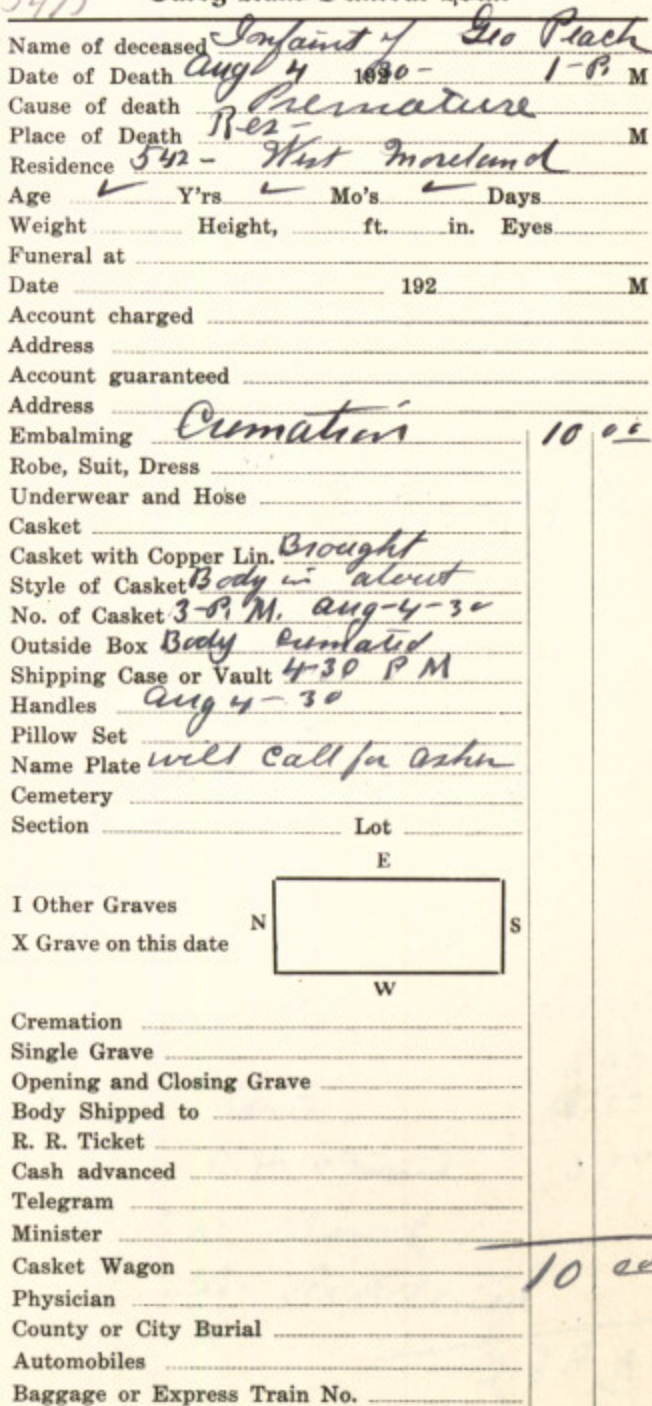 Name of deceased Infant of Geo Peach
Date of Death Aug 4 1930- 1-P. M
Cause of death Premature
Place of Death Res- M
Residence 542- West Moreland
Age ✓ Y'rs ✓ Mo's ✓ Days
Weight Height, ft. in. Eyes
Funeral at
Date 192 M
Account charged
Address
Account guaranteed
Address
Embalming Cremation 10 00
Robe, Suit, Dress
Underwear and Hose
Casket
Casket with Copper Lin. Brought
Style of Casket Body in about
No. of Casket 3-P. M. Aug-4-30
Outside Box Body cremated
Shipping Case or Vault 4-30 P M
Handles Aug 4-30
Pillow Set
Name Plate will call for ashes
Cemetery
Section Lot
E
I Other Graves
N S
X Grave on this date
W
Cremation
Single Grave
Opening and Closing Grave
Body Shipped to
R. R. Ticket
Cash advanced
Telegram
Minister
Casket Wagon 10 00
Physician
County or City Burial
Automobiles
Baggage or Express Train No.